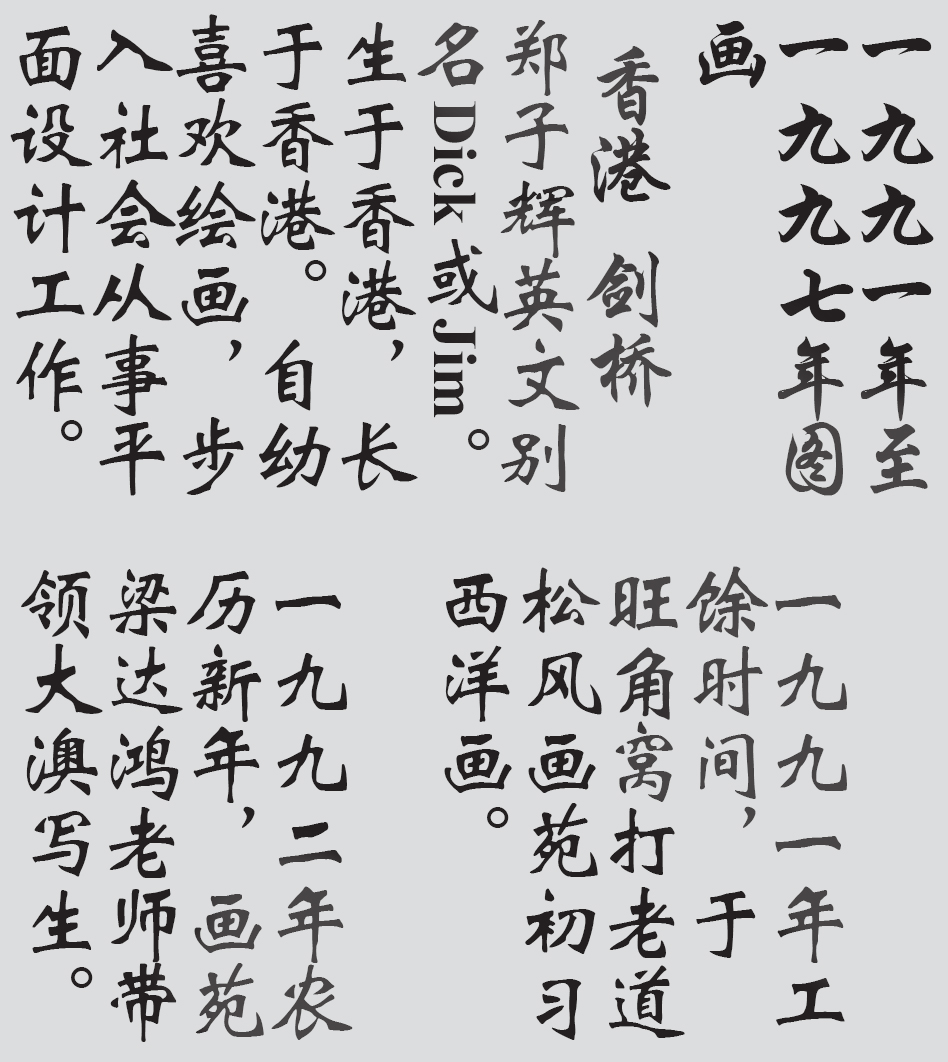 一九九一年至
一九九七年图
画
香港 剑桥
郑子辉英文别
名 Dick 或 Jim。
生于香港，长
于香港。自幼
喜欢绘画，步
入社会从事平
面设计工作。
一九九一年工
馀时间，于
旺角窝打老道
松风画苑初习
西洋画。
一九九二年农
历新年，画苑
梁达鸿老师带
领大澳写生。